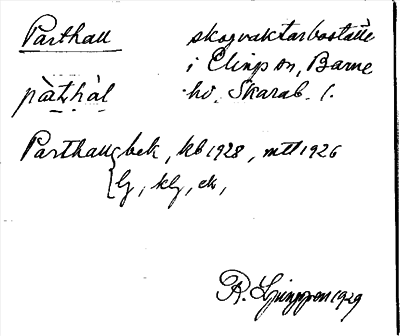 Parthall skogvaktarboställe
i Elingson, Barne
pàṭhàl hd. Skarab. l.
Parthall bek, kb 1928, mtl 1926
lj, klj, ek,
R. Ljunggren 1929